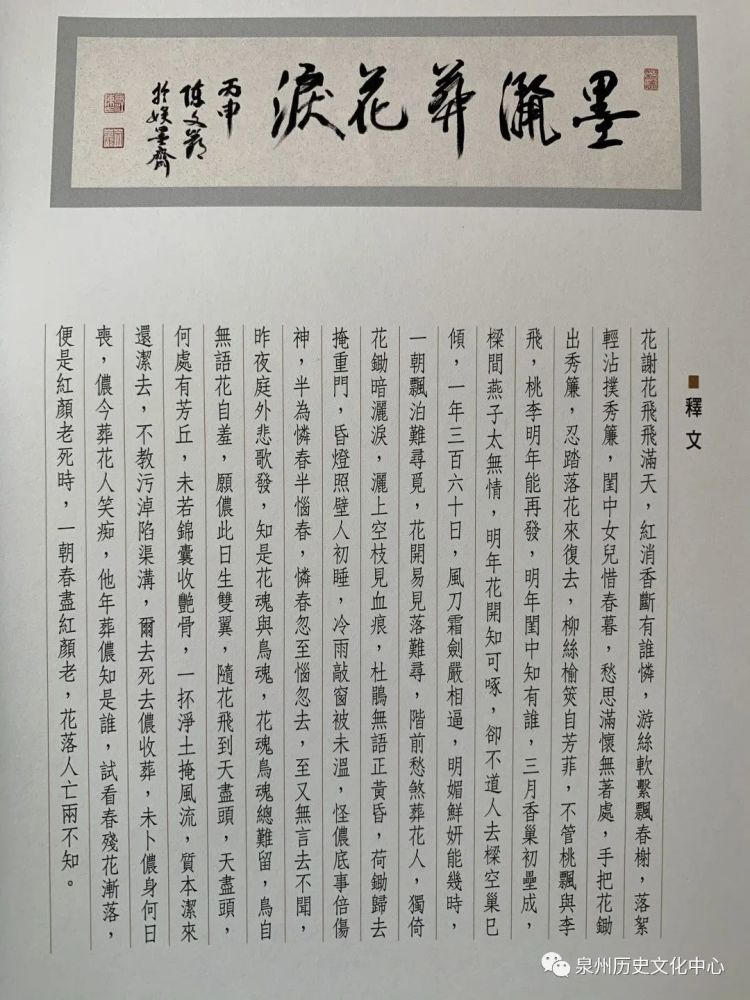 墨灑葬花淚
丙申
陳文
於娛墨齋
釋文
花謝花飛飛滿天，紅消香斷有誰憐，游絲軟繫飄春榭，落絮
輕沾撲秀簾，閨中女兒惜春暮，愁思滿懷無著處，手把花鋤
出秀簾，忍踏落花來復去，柳絲榆筴自芳菲，不管桃飄與李
飛，桃李明年能再發，明年閨中知有誰，三月香巢初壘成，
樑間燕子太無情，明年花開知可啄，卻不道人去樑空巢巳
傾，一年三百六十日，風刀霜劍嚴相逼，明媚鮮妍能幾時，
一朝飄泊難尋覓，花開易見落難尋，階前愁煞葬花人，獨倚
花鋤暗灑淚，灑上空枝見血痕，杜鵑無語正黃昏，荷鋤歸去
掩重門，昏燈照壁人初睡，冷雨敲窗被未溫，怪儂底事倍傷
神，半為憐春半惱春，憐春忽至惱忽去，至又無言去不聞，
昨夜庭外悲歌發，知是花魂與鳥魂，花魂鳥魂總難留，鳥自
無語花自羞，願儂此日生雙翼，隨花飛到天盡頭，天盡頭，
何處有芳丘，未若錦囊收艷骨，一抔淨土掩風流，質本潔來
還潔去，不教污淖陷渠溝，爾去死去儂收葬，未卜儂身何日
喪，儂今葬花人笑痴，他年葬儂知是誰，試看春殘花漸落，
便是紅顏老死時，一朝春盡紅顏老，花落人亡兩不知。
泉州历史文化中心